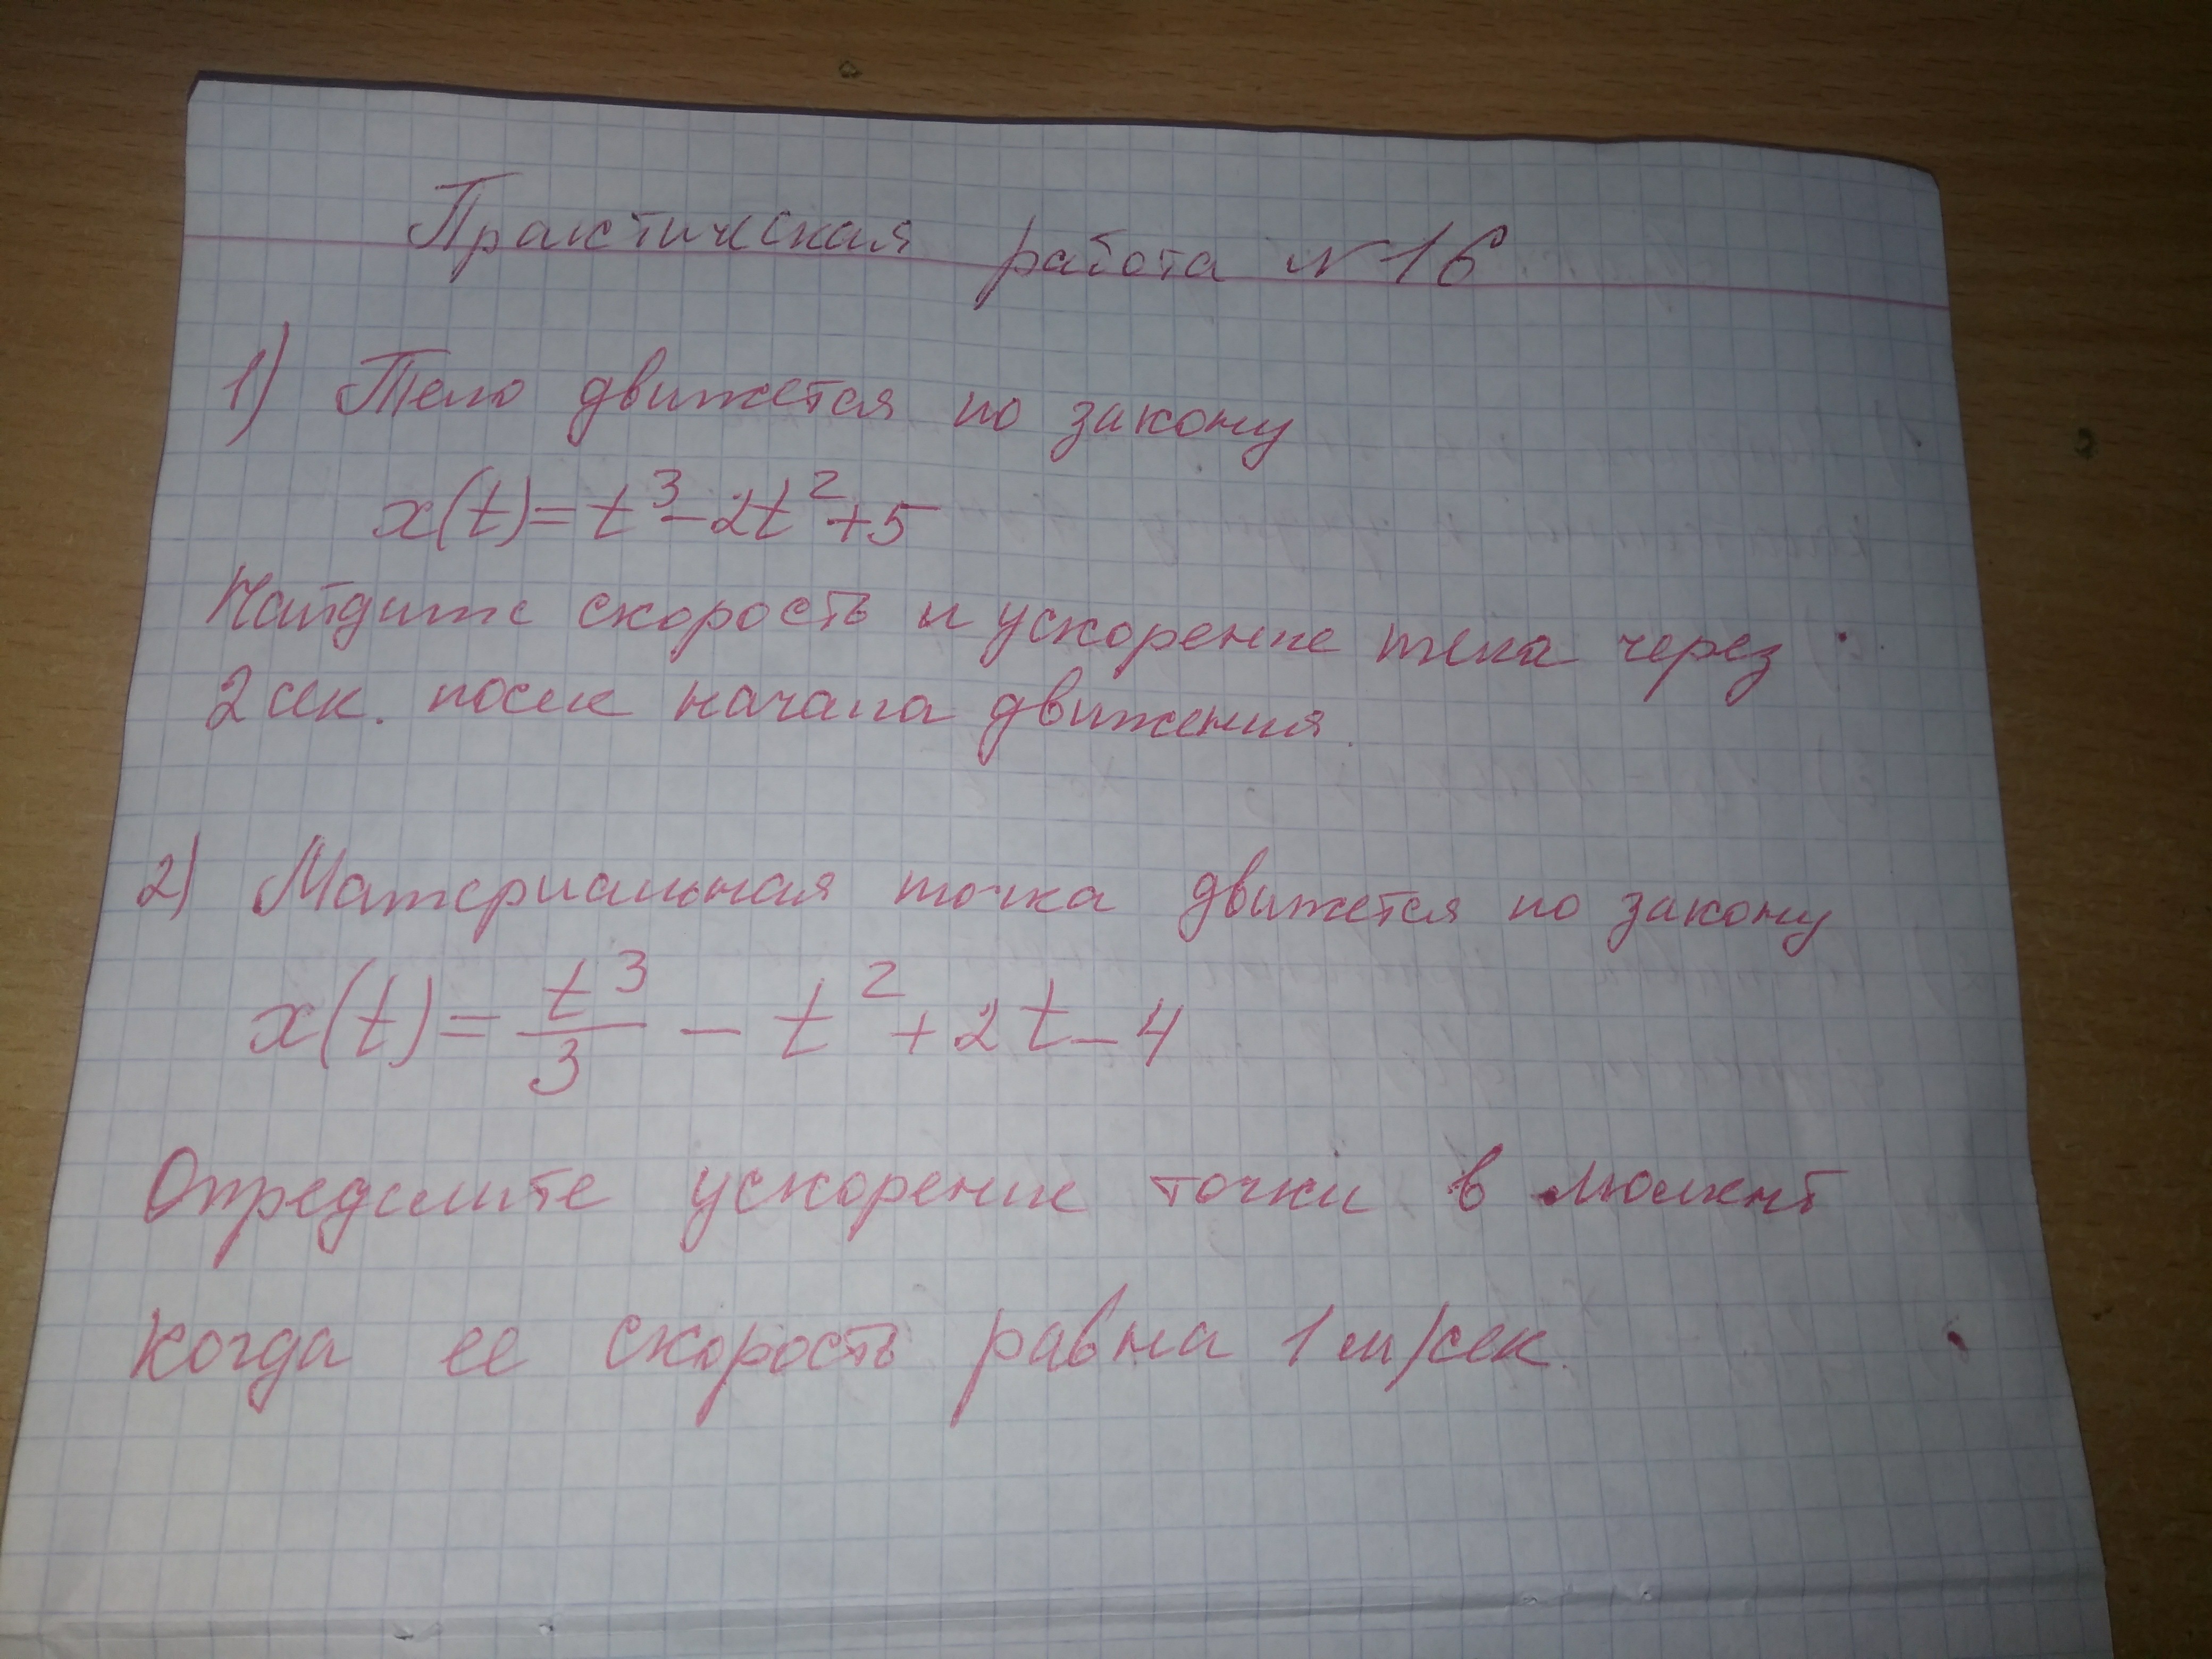 Практическая работа № 16
1) Тело движется по закону
x(t)=t³-2t²+5
Найдите скорость и ускорение тела через
2 сек. после начала движения.
2) Материальная точка движется по закону
x(t)= t³/3 - t²+2t-4
Определите ускорение точки в момент
когда ее скорость равна 1 м/сек.